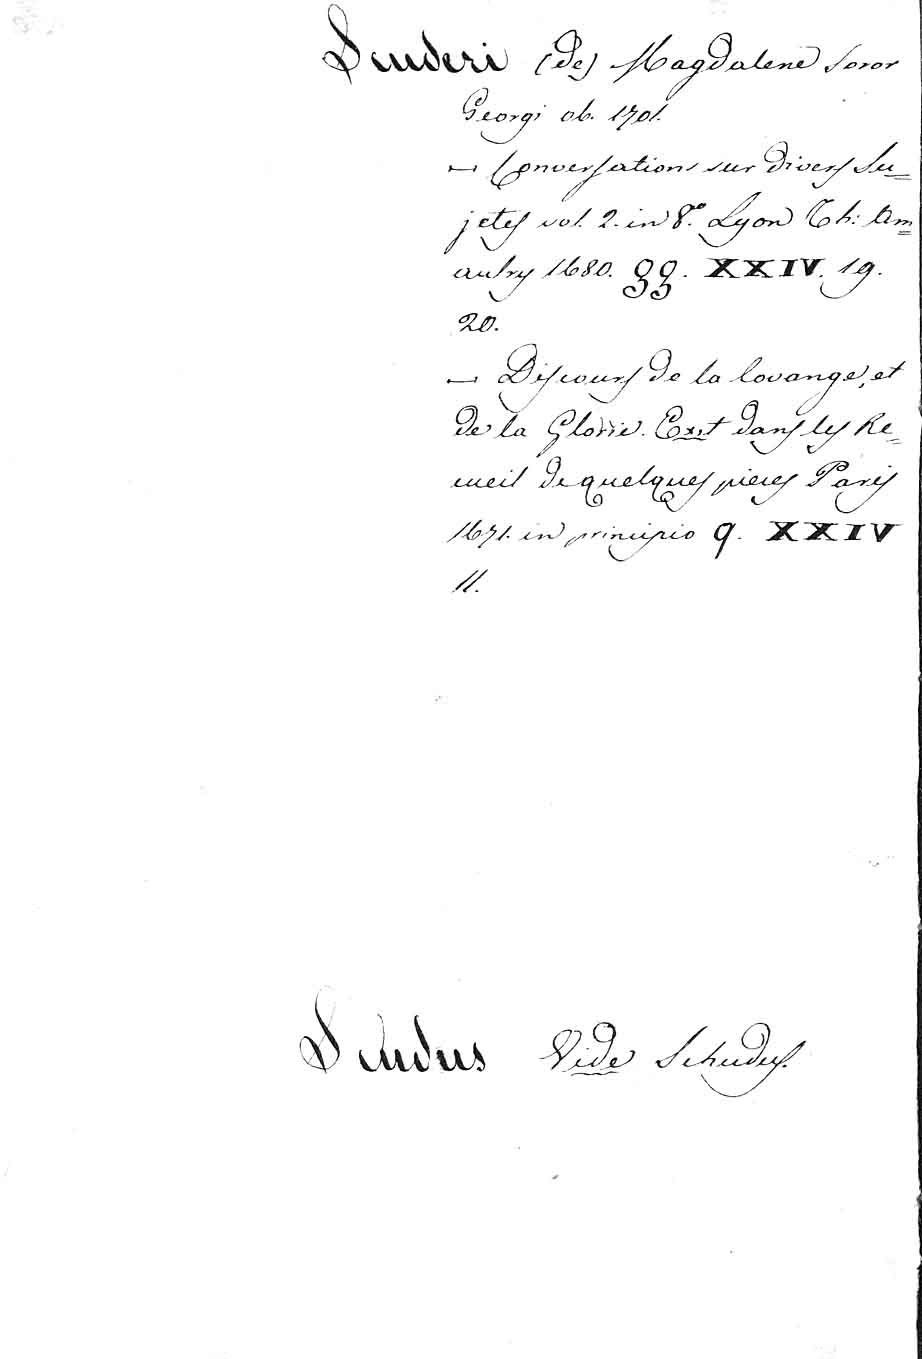 Scuderi (de) Magdalene Soror
Georgi ob. 1701.
— Conversations sur divers Su=
jets vol. 2. in 8.° Lyon Th: Am=
aulry 1680. gg. XXIV. 19.
20.
— Discours de la lovange, et
de la Glorie. Exst dans les Re=
cueil de quelques pieces Paris
1671. in principio q. XXIV
11.
Scudus Vide Schudus.